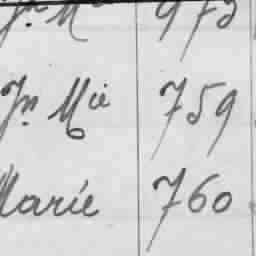 Jn Mie 759
Marie 760